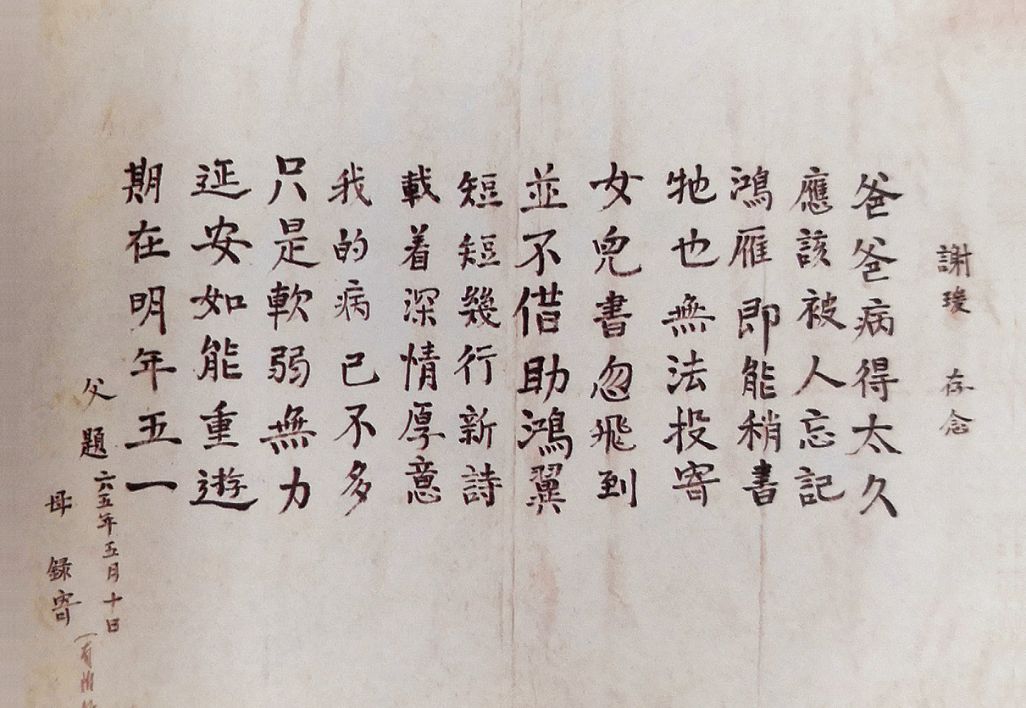 謝瑗 存念
爸爸病得太久
應該被人忘記
鴻雁即能稍書
牠也無法投寄
女兒書忽飛到
並不借助鴻翼
短短幾行新詩
載着深情厚意
我的病已不多
只是軟弱無力
延安如能重遊
期在明年五一
父題 六五年五月十日
母 錄寄